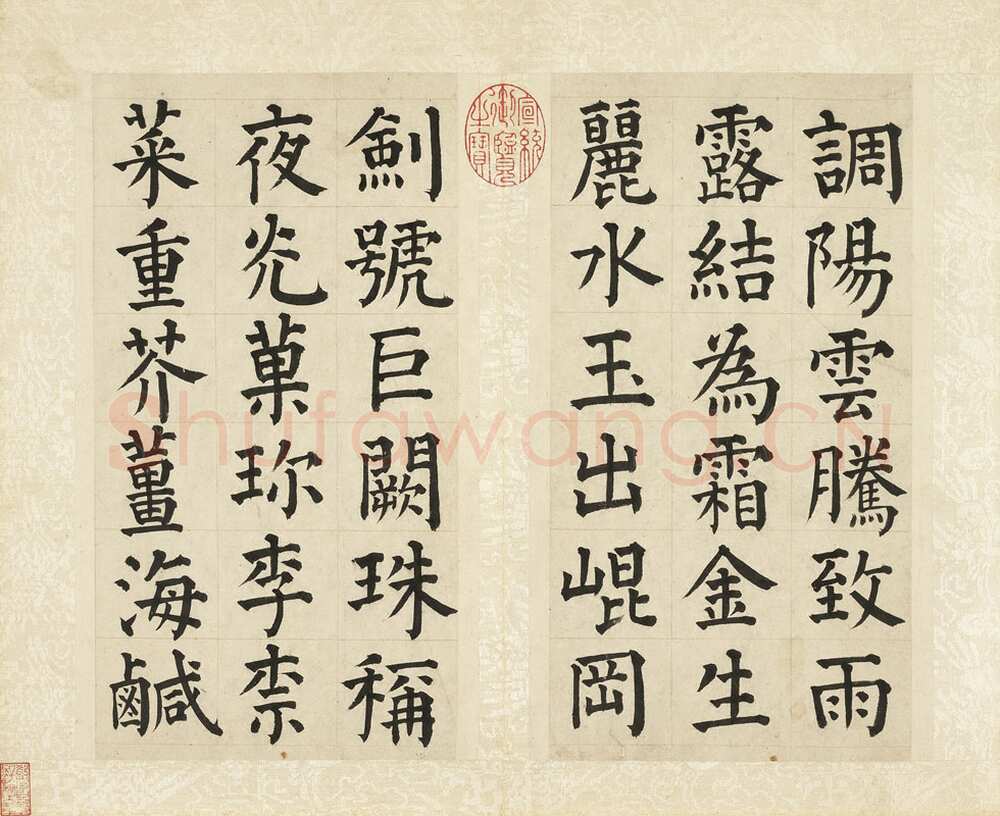 調陽雲騰致雨
露結為霜金生
麗水玉出崐岡
宣統御覽之寶
劍號巨闕珠稱
夜光菓珎李柰
菜重芥薑海鹹
Shufawang.CN